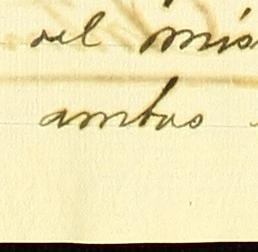 del mis
ambos